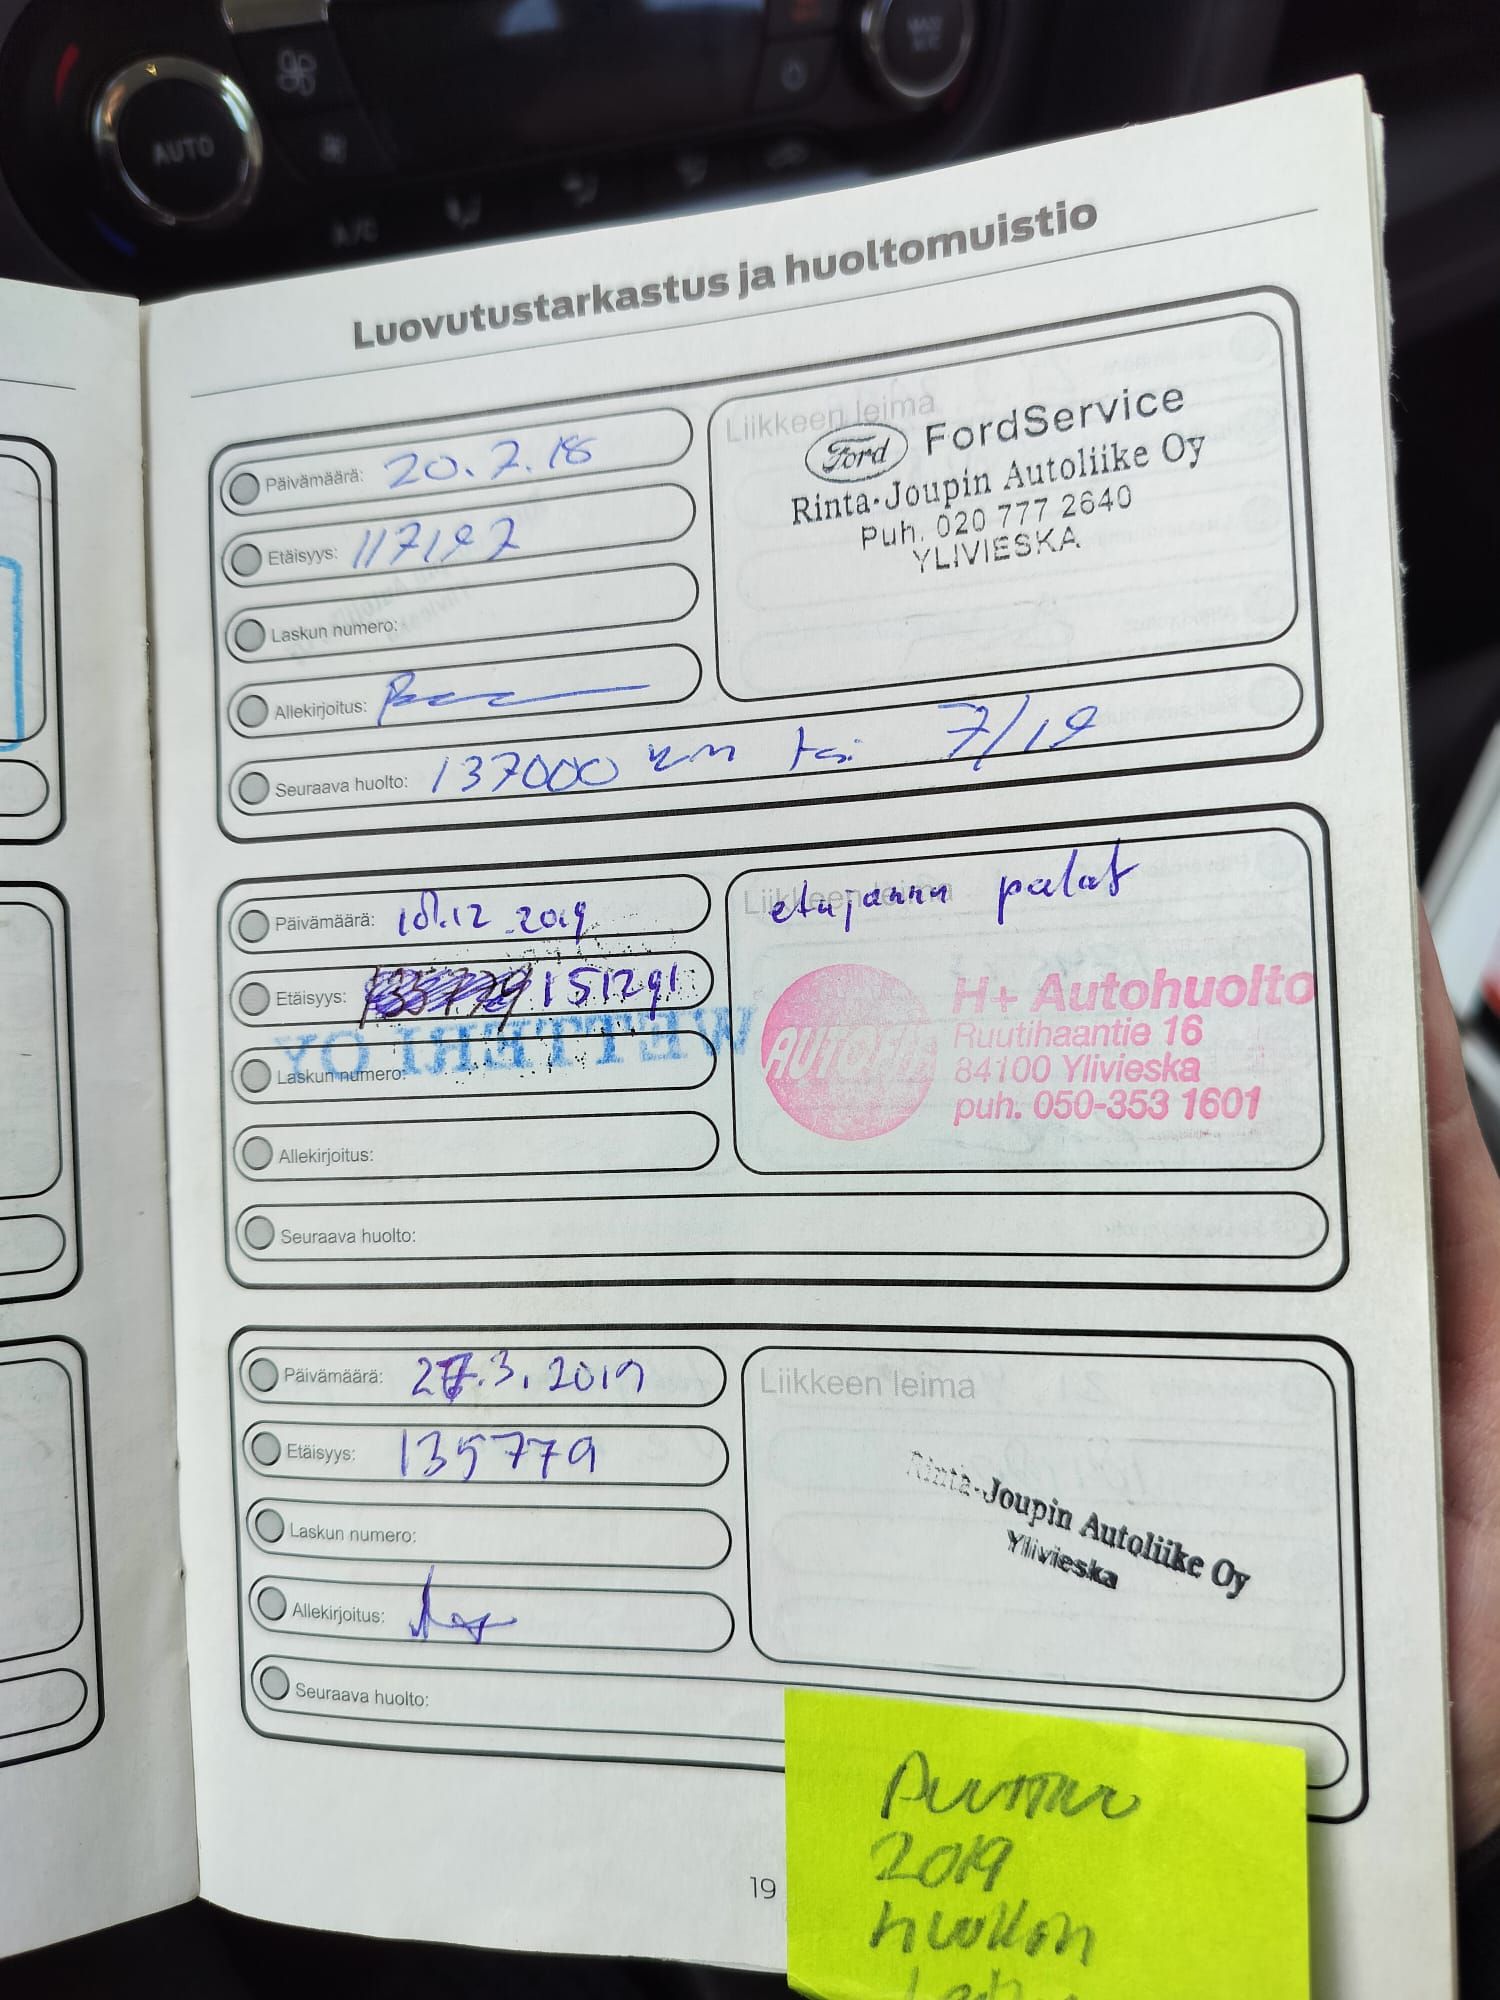 AUTO
A/C
Luovutustarkastus ja huoltomuistio
Päivämäärä: 20.7.18
Etäisyys: 117197
Laskun numero:
Allekirjoitus:
Seuraava huolto: 137000 km tai 7/19
Liikkeen leima
Ford FordService
Rinta-Joupin Autoliike Oy
Puh. 020 777 2640
YLIVIESKA
Päivämäärä: 18.12.2019
Etäisyys: 151291
WETTERI OY
Laskun numero:
Allekirjoitus:
Seuraava huolto:
Liikkeen leima
etujarru palat
H+ Autohuolto
Ruutihaantie 16
84100 Ylivieska
puh. 050-353 1601
Päivämäärä: 27.3.2019
Etäisyys: 135779
Laskun numero:
Allekirjoitus:
Seuraava huolto:
Liikkeen leima
Rinta-Joupin Autoliike Oy
Ylivieska
19
Puuttuu
2019
huollon